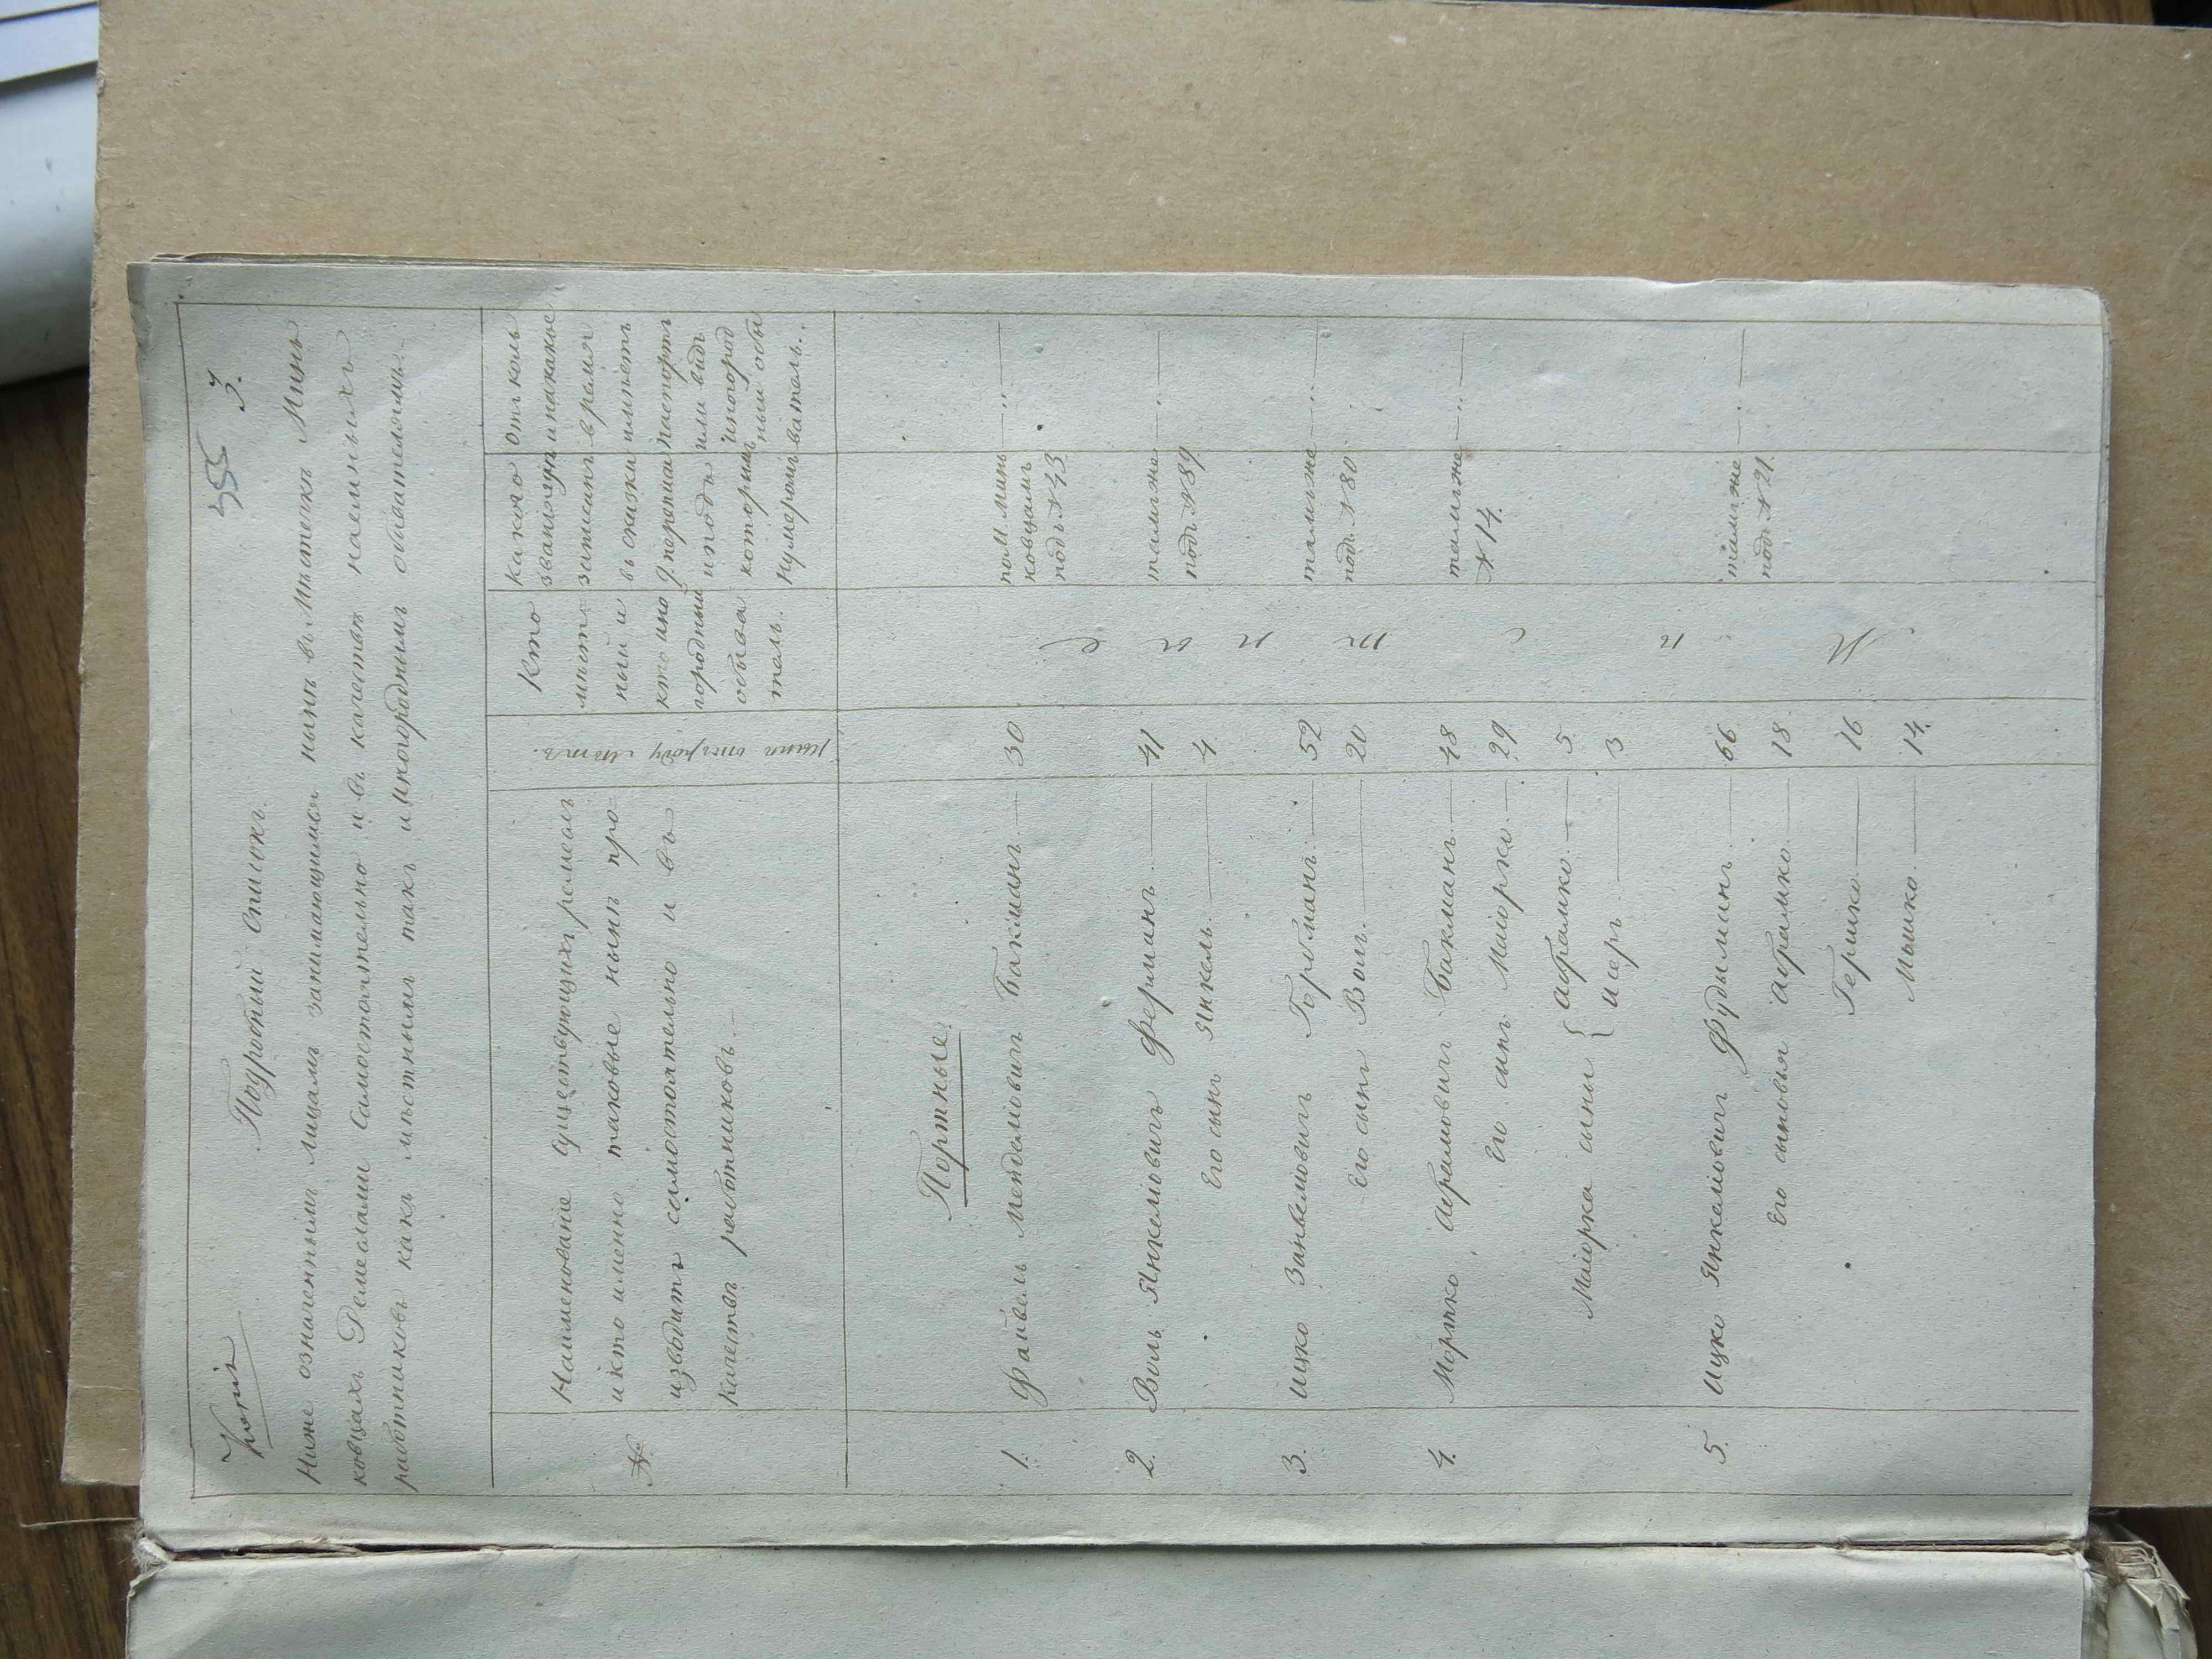 Копія
355
3.
Подробный Списокъ
Ниже означеннымъ лицамъ занимающимся нынѣ въ Мѣстечкѣ Минь
ковцахъ Ремеслами Самостоятельно и въ качествѣ наемныхъ
работниковъ какъ мѣстнымъ такъ и иногороднымъ обывателямъ.
№
Наименованіе существующихъ ремеслъ
и кто именно таковые нынѣ про
изводитъ самостоятельно и въ
качествѣ работниковъ.—
лѣтъ.
Кто
мѣст
ный и
кто ино
городный
обыва
тель.
Какого
званія гдѣ
записанъ
въ сказки
9. переписи
и подъ
которимъ
нумеромъ
откель
и накакое
время
имѣетъ
паспортъ
или видъ
иногород
ный обы
ватель.
Портные.
1. Файвель Мендельовичъ Бакманъ. — 30 по М. Минь — „ —
ковцамъ
подъ № 43
2. Воль Янкельовичъ Ферманъ. — 41 тамъ же — „ —
подъ № 39
Его сынъ Янкель. — 4.
3. Ицко Занвельовичъ Горбманъ. — 52 тамъ же — „ —
подъ № 80
Его сынъ Воль. — 20
4. Мортко Абрамовичъ Бакманъ — 48 тамъ же — „ —
№ 14.
Его сынъ Маіорко — 29
Маіорка сыны { Абрамко. — 5
Исеръ. — 3
5. Ицко Янкельовичъ Фудыманъ. — 66 тамъ же — „ —
подъ № 21.
Его сыновья Абрамко — 18
Гершко — 16
Мошко. — 14.